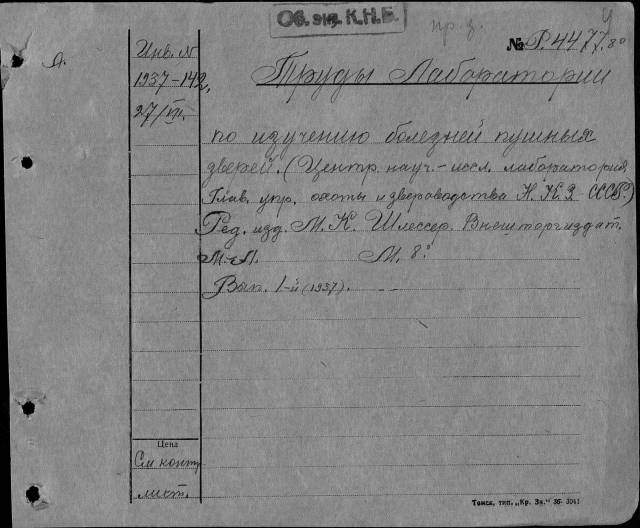 Об. энц. К.Н.Б.
пр. з.
№ Р.4477 8º
Инв. №
1937-142
27/VIII.
Труды Лаборатории
по изучению болезней пушных
зверей. (Центр. науч.-иссл. лаборатория
Глав. упр. охоты и звероводства Н.К.З СССР.)
Ред. изд. М. К. Шлессер. Внешторгиздат.
М.-Л. М. 8º
Вып. 1-й (1937). --
Цена
См конт.
лист.
Томск. тип. „Кр. Зн." 35- 3041